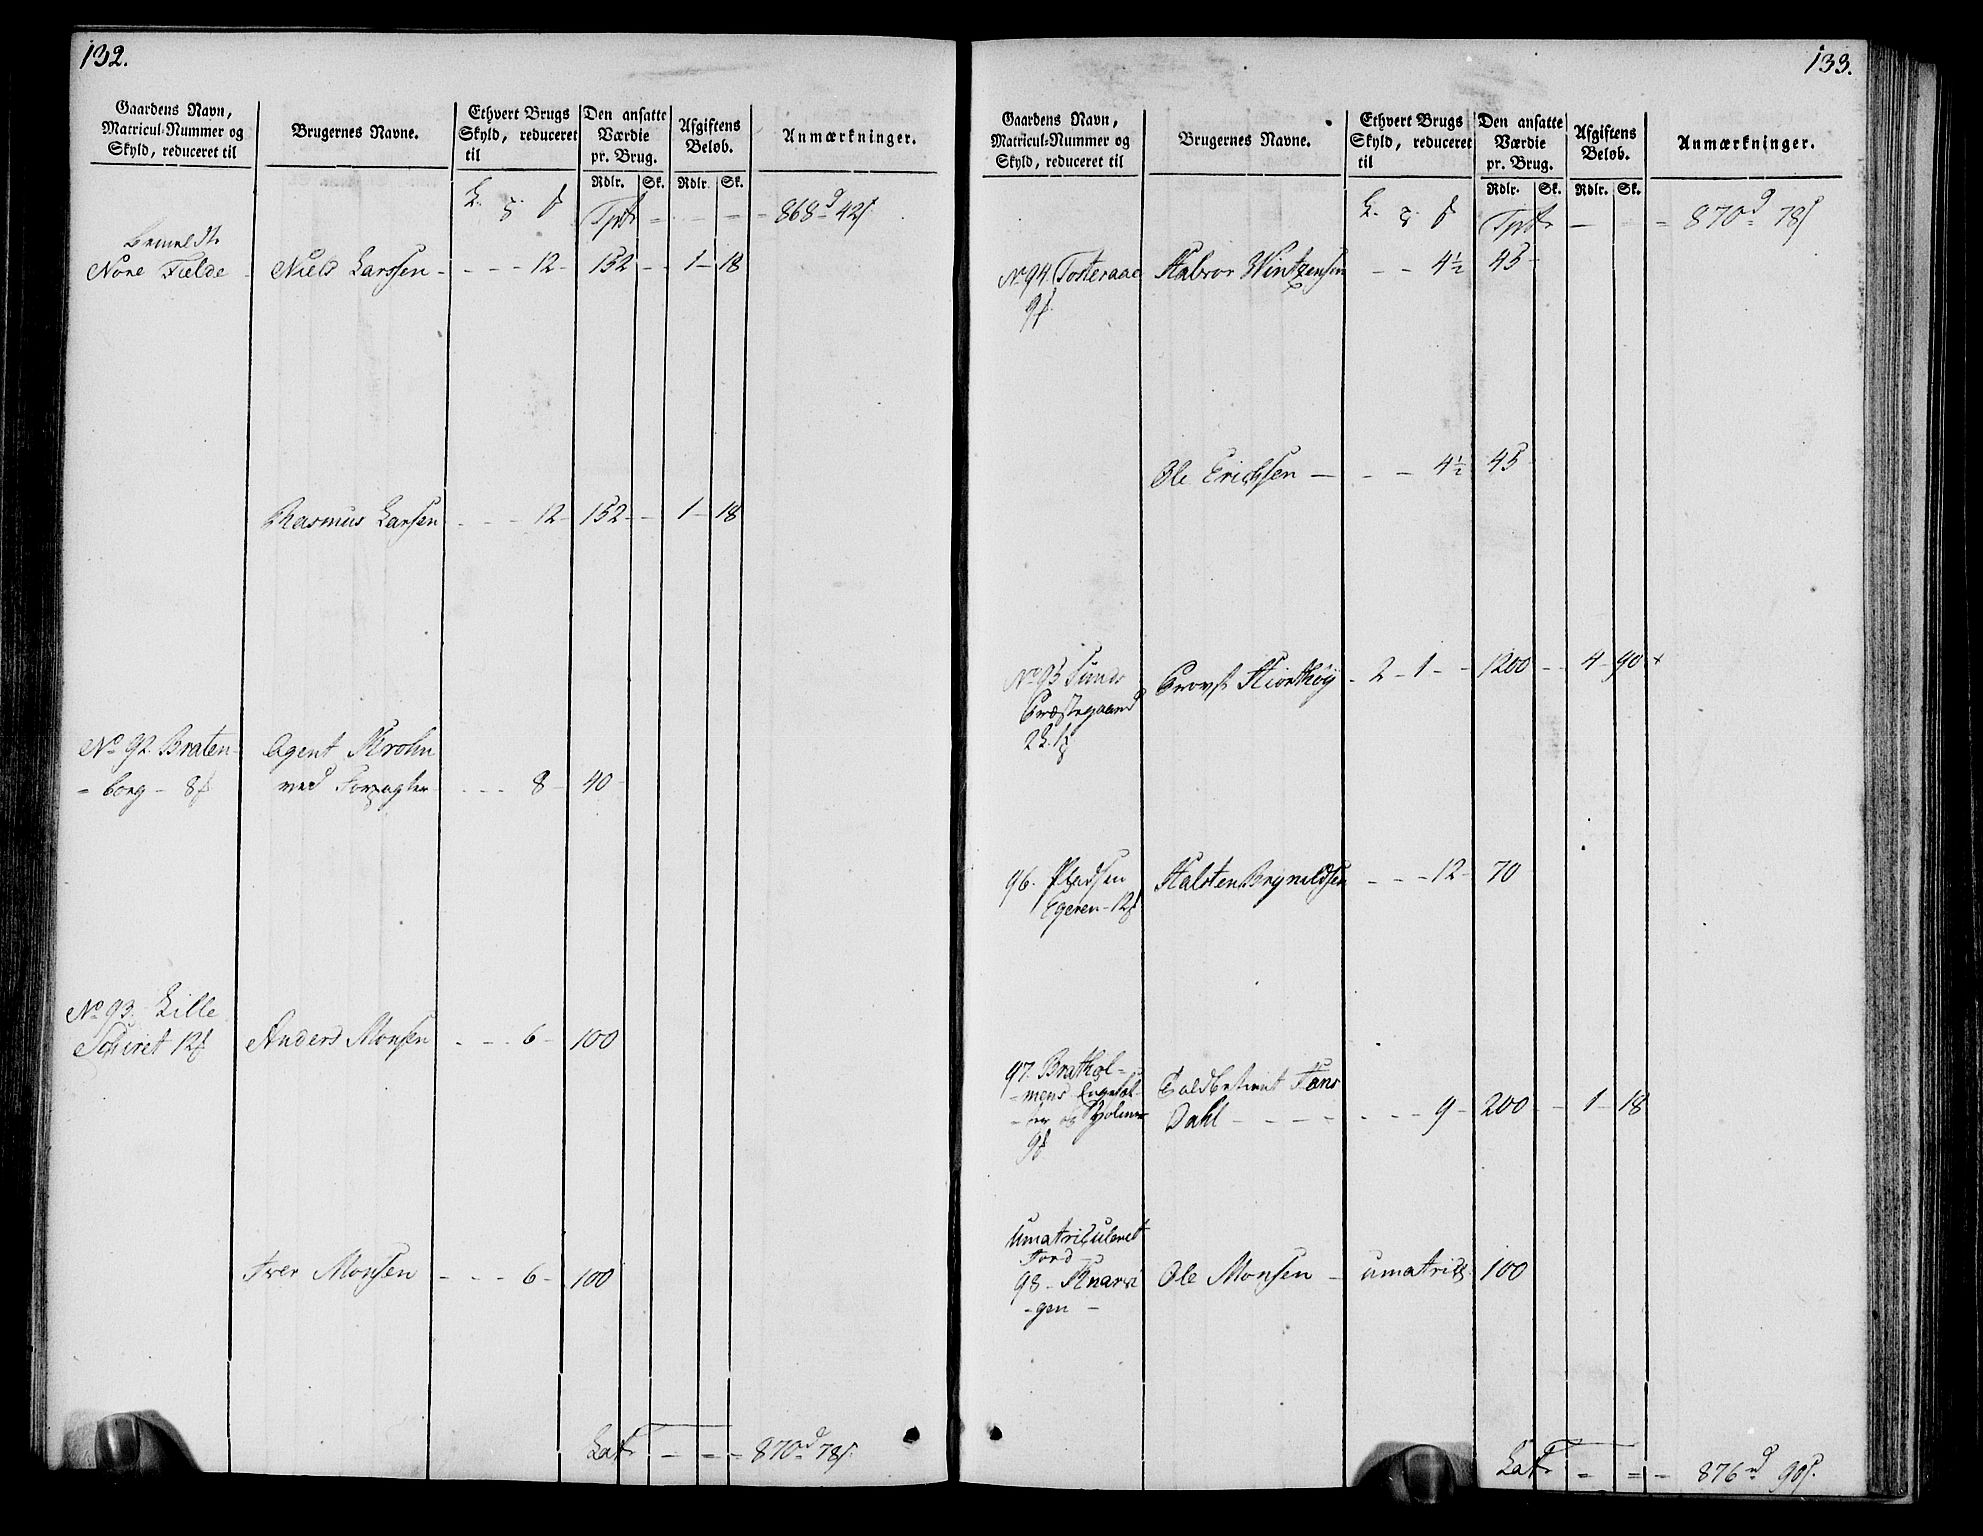 132.
Gaardens Navn,
Matricul-Nummer og
Skyld, reduceret til
Brugernes Navne.
Ethvert Brugs
Skyld, reduceret
til
Den ansatte
Værdie
pr. Brug.
Rdlr. Sk.
Afgiftens
Beløb.
Rdlr. Sk.
Anmærkninger.
Tptr - - - 868 d 42 s.
bemeldte
Nore Fielde Niels Larssen - - - 12 - 152 - - 1 - 18
Rasmus Larsen - - - 12 - 152 - - 1 - 18
No 92. Braten- Agent Krohn
- borg - 8 ved Forpagter - - - 8 - 40 -
No 93. Lille
12 Anders Monsen - - - 6 - 100
Iver Monsen - - - 6 - 100
Lat - - - 870 d 78 s.
133.
Gaardens Navn,
Matricul-Nummer og
Skyld, reduceret til
Brugernes Navne.
Ethvert Brugs
Skyld, reduceret
til
Den ansatte
Værdie
pr. Brug.
Rdlr. Sk.
Afgiftens
Beløb.
Rdlr. Sk.
Anmærkninger.
Tptr - - - 870 d 78 s
No 94. Tosteraae Halvor Wintzensen - - 4½ 45 -
9
Ole Erichsen - - - 4½ 45 -
No 95 Sunds Provst Hiorthøy - 2 - 1 - - 1200 - - 4 - 90 +
Præstegaard
96. Pladsen Halsten Brynildsen - - - 12 - 70
Egeren - 12
97. Brathol-
- mens Toldbetient Fans
- ter og Holmen Dahl - - - - - - - - 9 - 200 - - 1 - 18
9
Umatriculeret
Jord
98 - Knarvi Ole Monsen - umatricl. 100
- gen -
Lat - = - 876 d 90 s.